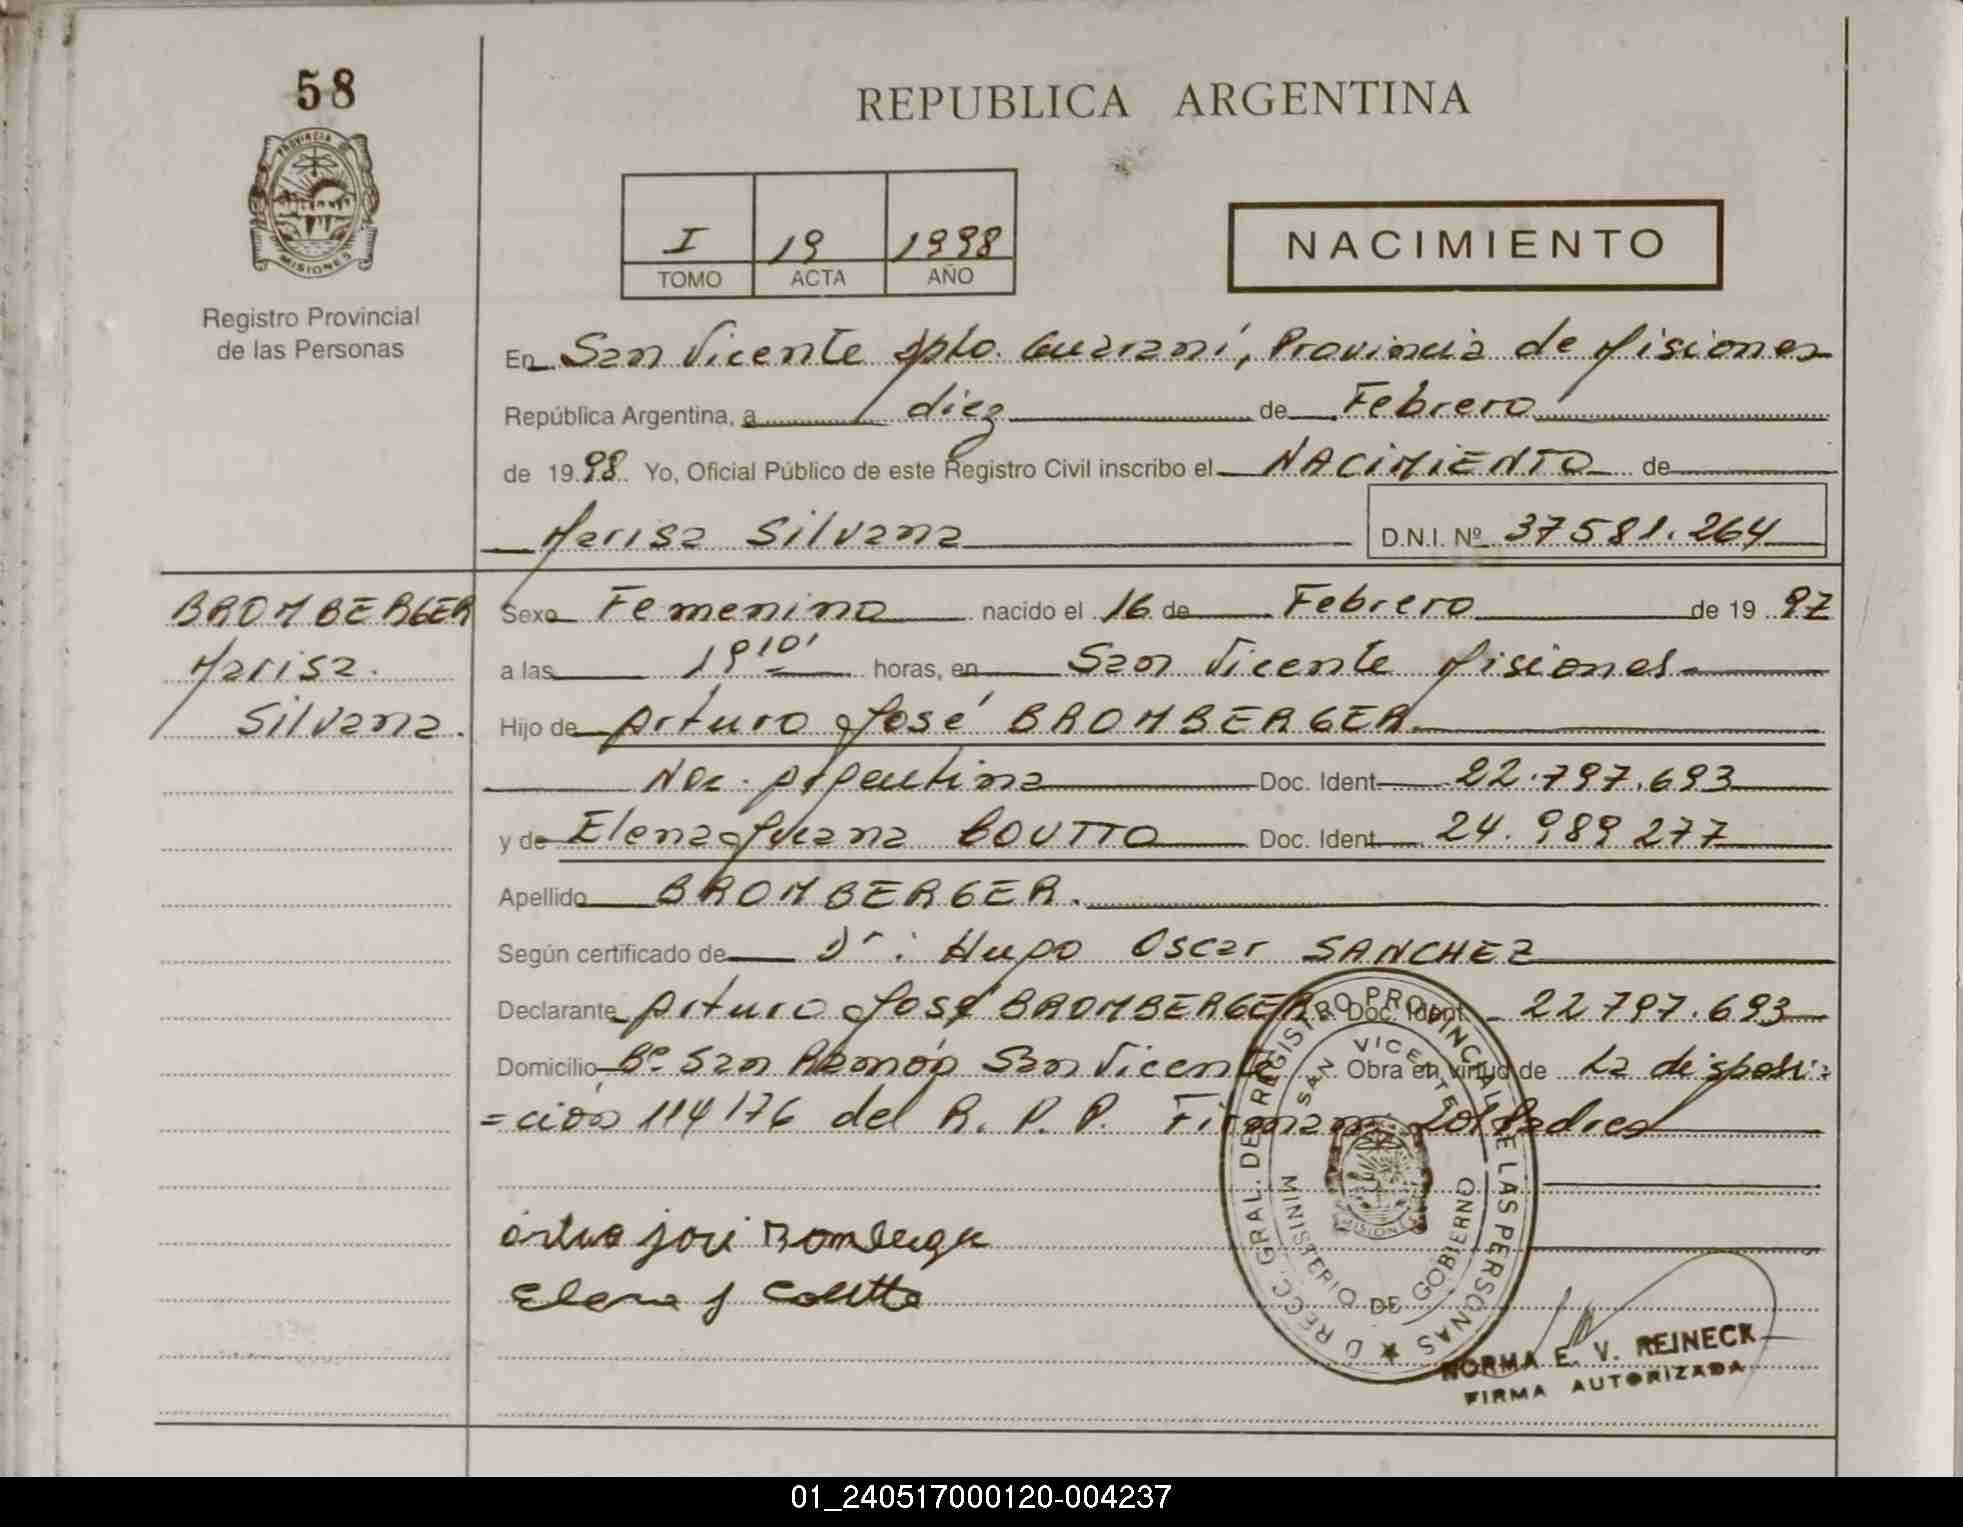 58
PROVINCIA DE
MISIONES
Registro Provincial
de las Personas
REPUBLICA ARGENTINA
I 19 1998
TOMO ACTA AÑO
NACIMIENTO
En San Vicente Dpto. Guaraní, Provincia de Misiones
República Argentina, a diez de Febrero
de 1998 Yo, Oficial Público de este Registro Civil inscribo el NACIMIENTO de
Marisa Silvana D.N.I. Nº 37581.264
BROMBERGER
Marisa
Silvana.
Sexo Femenino nacido el 16 de Febrero de 19 97
a las 19 10' horas, en San Vicente Misiones
Hijo de Arturo José BROMBERGER
Nac. Argentina Doc. Ident 22.797.693
y de Elena Juana COUTTO Doc. Ident 24.989 277
Apellido BROMBERGER.
Según certificado de Dr. Hugo Oscar SANCHEZ
Declarante Arturo José BROMBERGER Doc. Ident 22797.693
Domicilio Bº San Ramón San Vicente Obra en virtud de La disposi=
=ción 114/76 del R. P. P. Firman Los Padres
Elena J
DIRECC. GRAL. DE REGISTRO PROVINCIAL DE LAS PERSONAS
SAN VICENTE
MINISTERIO DE GOBIERNO
MISIONES
NORMA E. V. REINECK
FIRMA AUTORIZADA
01_240517000120-004237